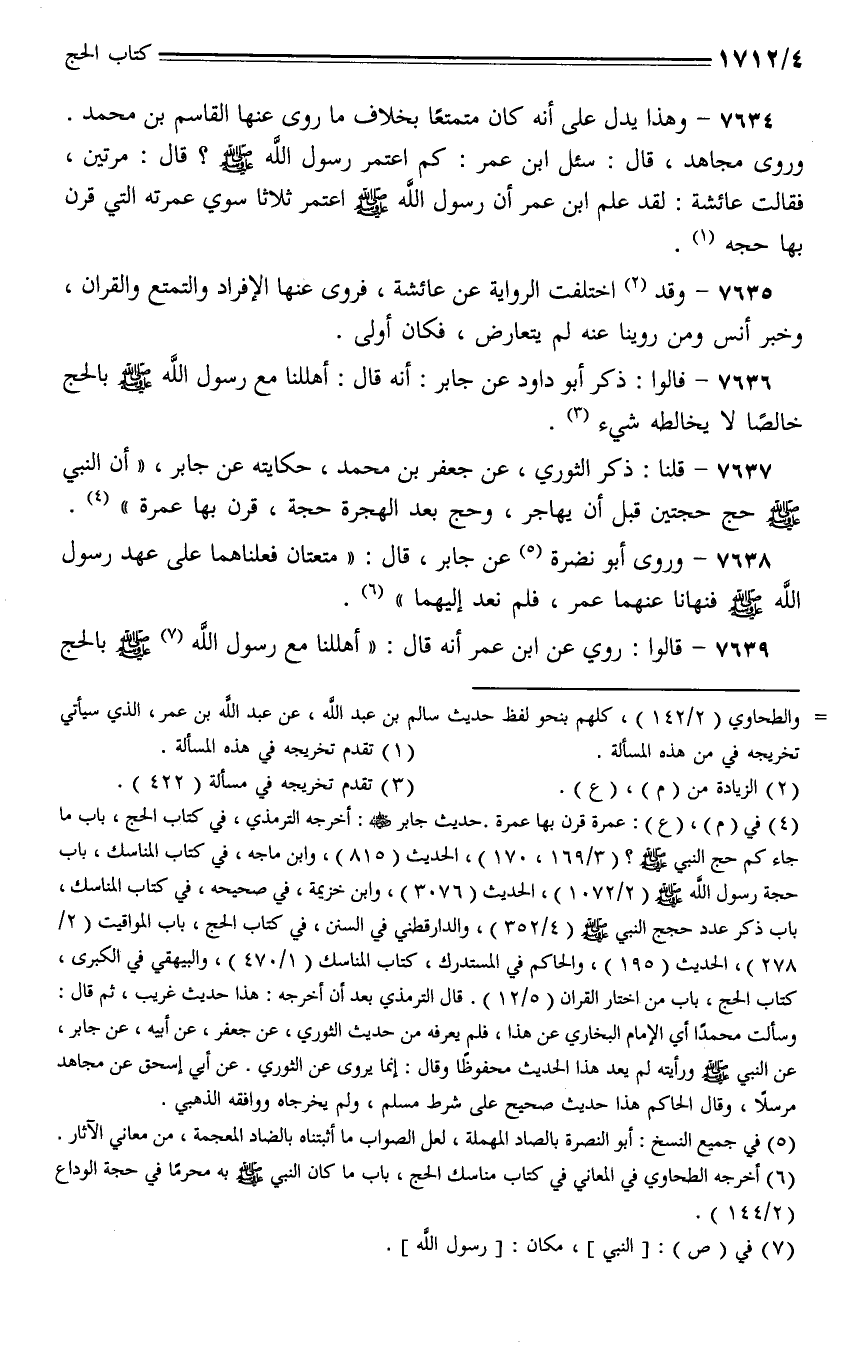 ١٧١٢/٤ كتاب الحج
٧٦٣٤ - وهذا يدل على أنه كان متمتعًا بخلاف ما روى عنها القاسم بن محمد .
وروى مجاهد ، قال : سئل ابن عمر : كم اعتمر رسول اللَّه ﷺ ؟ قال : مرتين ،
فقالت عائشة : لقد علم ابن عمر أن رسول اللَّه ﷺ اعتمر ثلاثا سوي عمرته التي قرن
بها حجه (١) .
٧٦٣٥ - وقد (٢) اختلفت الرواية عن عائشة ، فروى عنها الإفراد والتمتع والقران ،
وخبر أنس ومن روينا عنه لم يتعارض ، فكان أولى .
٧٦٣٦ - قالوا : ذكر أبو داود عن جابر : أنه قال : أهللنا مع رسول اللَّه ﷺ بالحج
خالصًا لا يخالطه شيء (٣) .
٧٦٣٧ - قلنا : ذكر الثوري ، عن جعفر بن محمد ، حكايته عن جابر ، « أن النبي
ﷺ حج حجتين قبل أن يهاجر ، وحج بعد الهجرة حجة ، قرن بها عمرة » (٤) .
٧٦٣٨ - وروى أبو نضرة (٥) عن جابر ، قال : « متعتان فعلناهما على عهد رسول
اللَّه ﷺ فنهانا عنهما عمر ، فلم نعد إليهما » (٦) .
٧٦٣٩ - قالوا : روي عن ابن عمر أنه قال : « أهللنا مع رسول اللَّه (٧) ﷺ بالحج
= والطحاوي ( ١٤٢/٢ ) ، كلهم بنحو لفظ حديث سالم بن عبد اللَّه ، عن عبد اللَّه بن عمر ، الذي سيأتي
تخريجه في من هذه المسألة . (١) تقدم تخريجه في هذه المسألة .
(٢) الزيادة من ( م ) ، ( ع ) . (٣) تقدم تخريجه في مسألة ( ٤٢٢ ) .
(٤) في ( م ) ، ( ع ) : عمرة قرن بها عمرة .حديث جابر ﷺ : أخرجه الترمذي ، في كتاب الحج ، باب ما
جاء كم حج النبي ﷺ ؟ ( ١٦٩/٣ ، ١٧٠ ) ، الحديث ( ٨١٥ ) ، وابن ماجه ، في كتاب المناسك ، باب
حجة رسول اللَّه ﷺ ( ١٠٧٢/٢ ) ، الحديث ( ٣٠٧٦ ) ، وابن خزيمة ، في صحيحه ، في كتاب المناسك ،
باب ذكر عدد حجج النبي ﷺ ( ٣٥٢/٤ ) ، والدارقطني في السنن ، في كتاب الحج ، باب المواقيت ( ٢/
٢٧٨ ) ، الحديث ( ١٩٥ ) ، والحاكم في المستدرك ، كتاب المناسك ( ٤٧٠/١ ) ، والبيهقي في الكبرى ،
كتاب الحج ، باب من اختار القران ( ١٢/٥ ) . قال الترمذي بعد أن أخرجه : هذا حديث غريب ، ثم قال :
وسألت محمدًا أي الإمام البخاري عن هذا ، فلم يعرفه من حديث الثوري ، عن جعفر ، عن أبيه ، عن جابر ،
عن النبي ﷺ ورأيته لم يعد هذا الحديث محفوظًا وقال : إنما يروى عن الثوري . عن أبي إسحق عن مجاهد
مرسلًا ، وقال الحاكم هذا حديث صحيح على شرط مسلم ، ولم يخرجاه ووافقه الذهبي .
(٥) في جميع النسخ : أبو النصرة بالصاد المهملة ، لعل الصواب ما أثبتناه بالضاد المعجمة ، من معاني الآثار .
(٦) أخرجه الطحاوي في المعاني في كتاب مناسك الحج ، باب ما كان النبي ﷺ به محرمًا في حجة الوداع
( ١٤٤/٢ ) .
(٧) في ( ص ) : [ النبي ] ، مكان : [ رسول اللَّه ] .